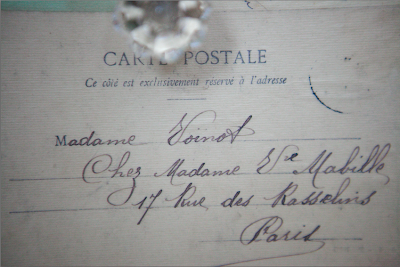 CARTE POSTALE
Ce côté est exclusivement réservé à l'adresse
Madame Voinot
Chez Madame Vᵉ Mabille
17 Rue des Rasselins
Paris